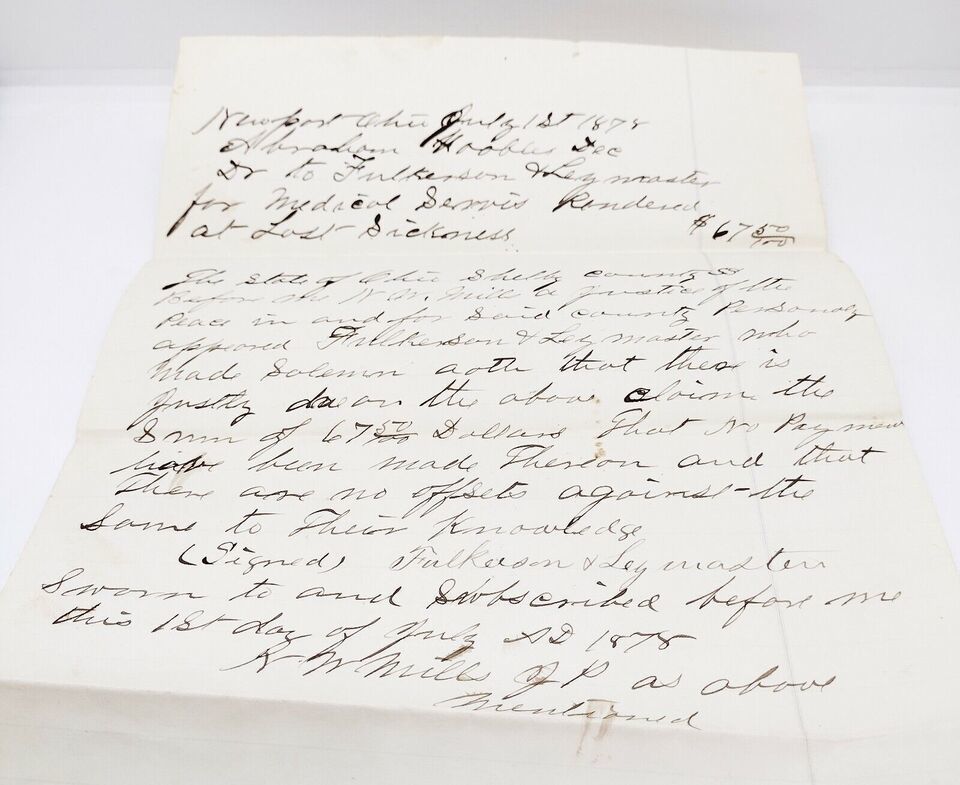 Newport Ohio July 1st 1878
Abraham Hoobler Dec
Dr to Fulkerson & Leymaster
for Medical Servis Rendered
at Last Sickness $67 50/100
The State of Ohio Shelby county SS
Before me N. W. Mills a Justice of the
Peace in and for Said county Personaly
appeared Fullkerson & Leymaster who
made Solemn aoth that there is
Justly due on the above claim the
Sum of 67 50/100 Dollars That No Payment
have been made Thereon and that
There are no offsets against the
Same to Their Knowledge
(Signed) Fulkerson & Leymaster
Sworn to and Subscribed before me
this 1st day of July AD 1878
N W Mills J P as above
mentioned